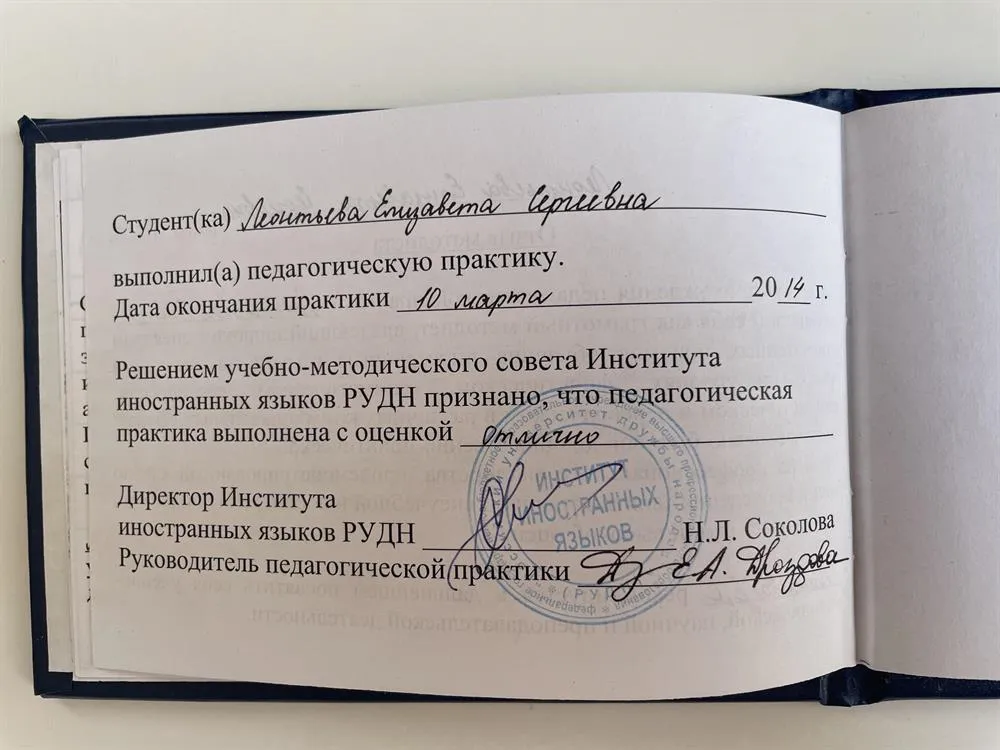 Студент(ка) Леонтьева Елизавета Сергеевна
выполнил(а) педагогическую практику.
Дата окончания практики 10 марта 2014 г.
Решением учебно-методического совета Института
иностранных языков РУДН признано, что педагогическая
практика выполнена с оценкой отлично
Директор Института
иностранных языков РУДН Н.Л. Соколова
Руководитель педагогической практики Е.А. Дроздова
ИНСТИТУТ
ИНОСТРАННЫХ
ЯЗЫКОВ
университет дружбы народов
(РУДН)